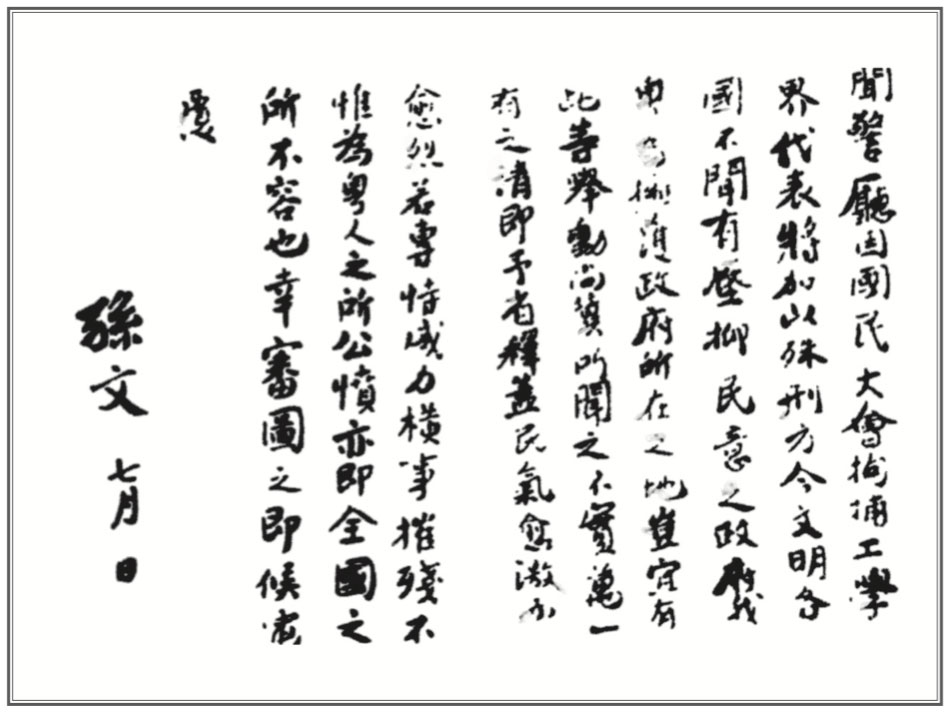 聞警廳因國民大會拘捕工學
界代表將加以殊刑方今文明各
國不聞有壓抑民意之政府我
粤為擁護政府所在之地豈宜有
此等舉動尚冀所聞之不實萬一
有之請即予省釋蓋民氣愈激而
愈烈若專恃威力橫事摧殘不
惟為粤人之所公憤亦即全國之
所不容也幸審圖之即候
孫文 七月 日